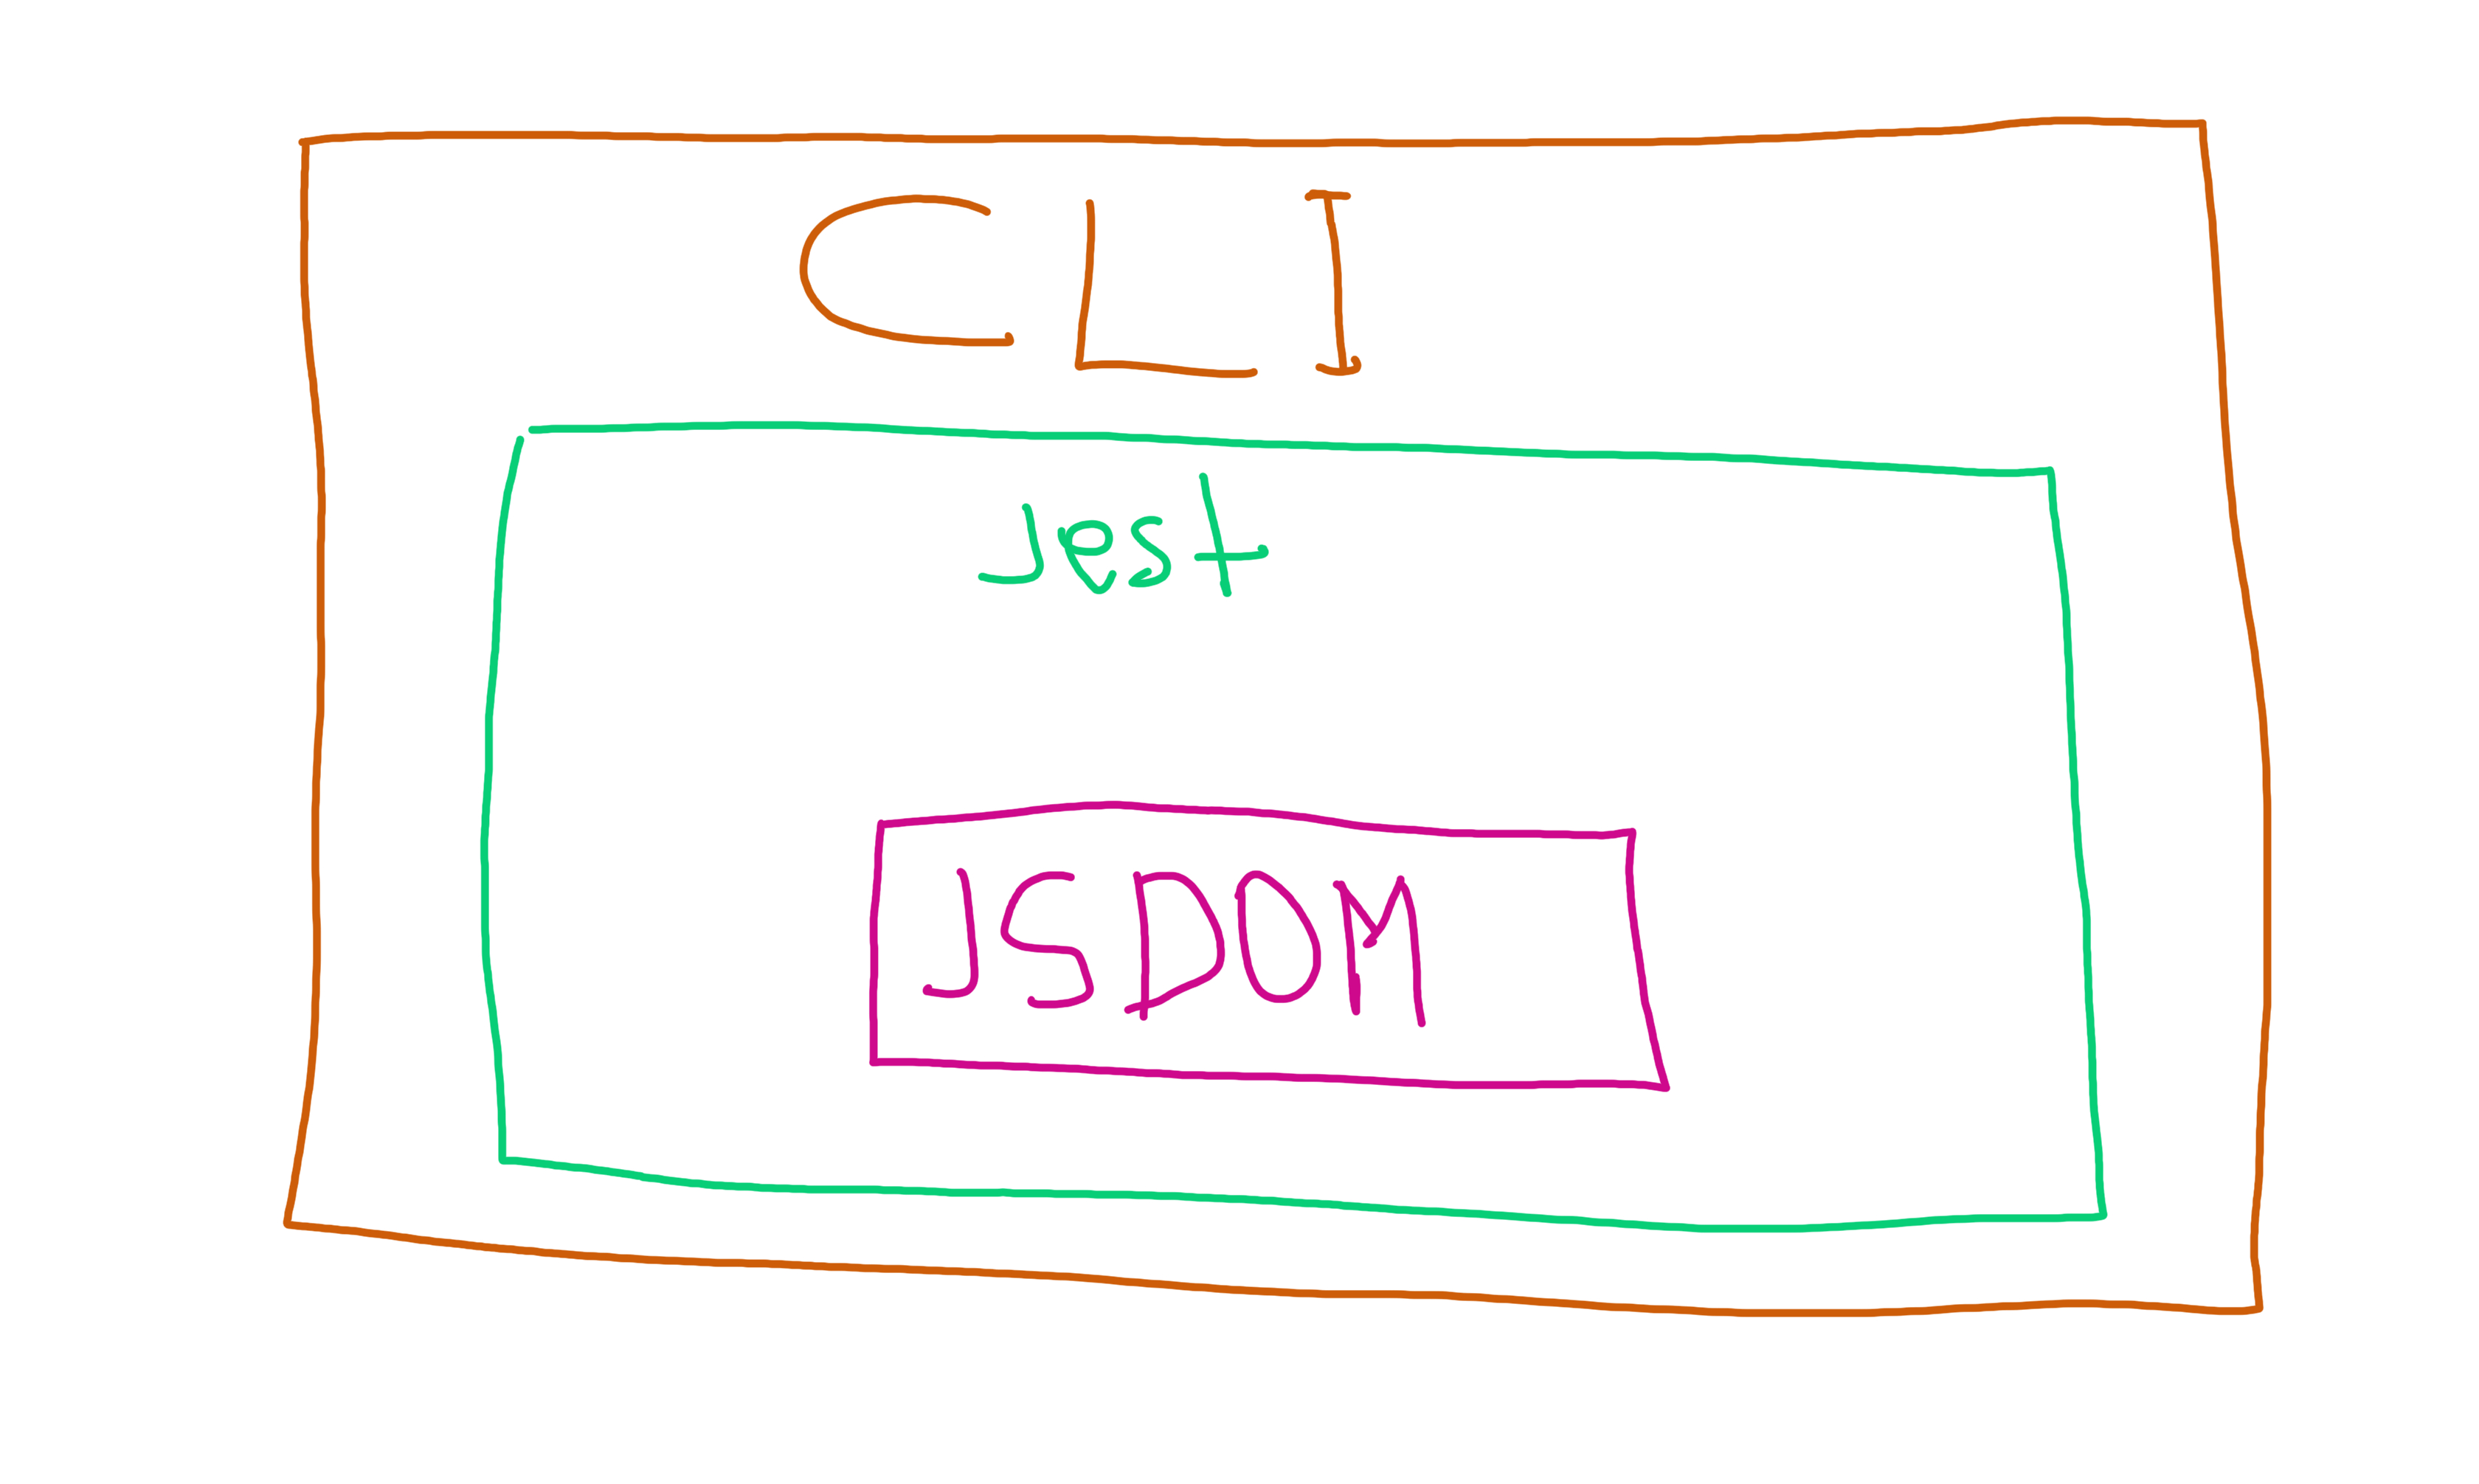 CLI
Jest
JSDOM